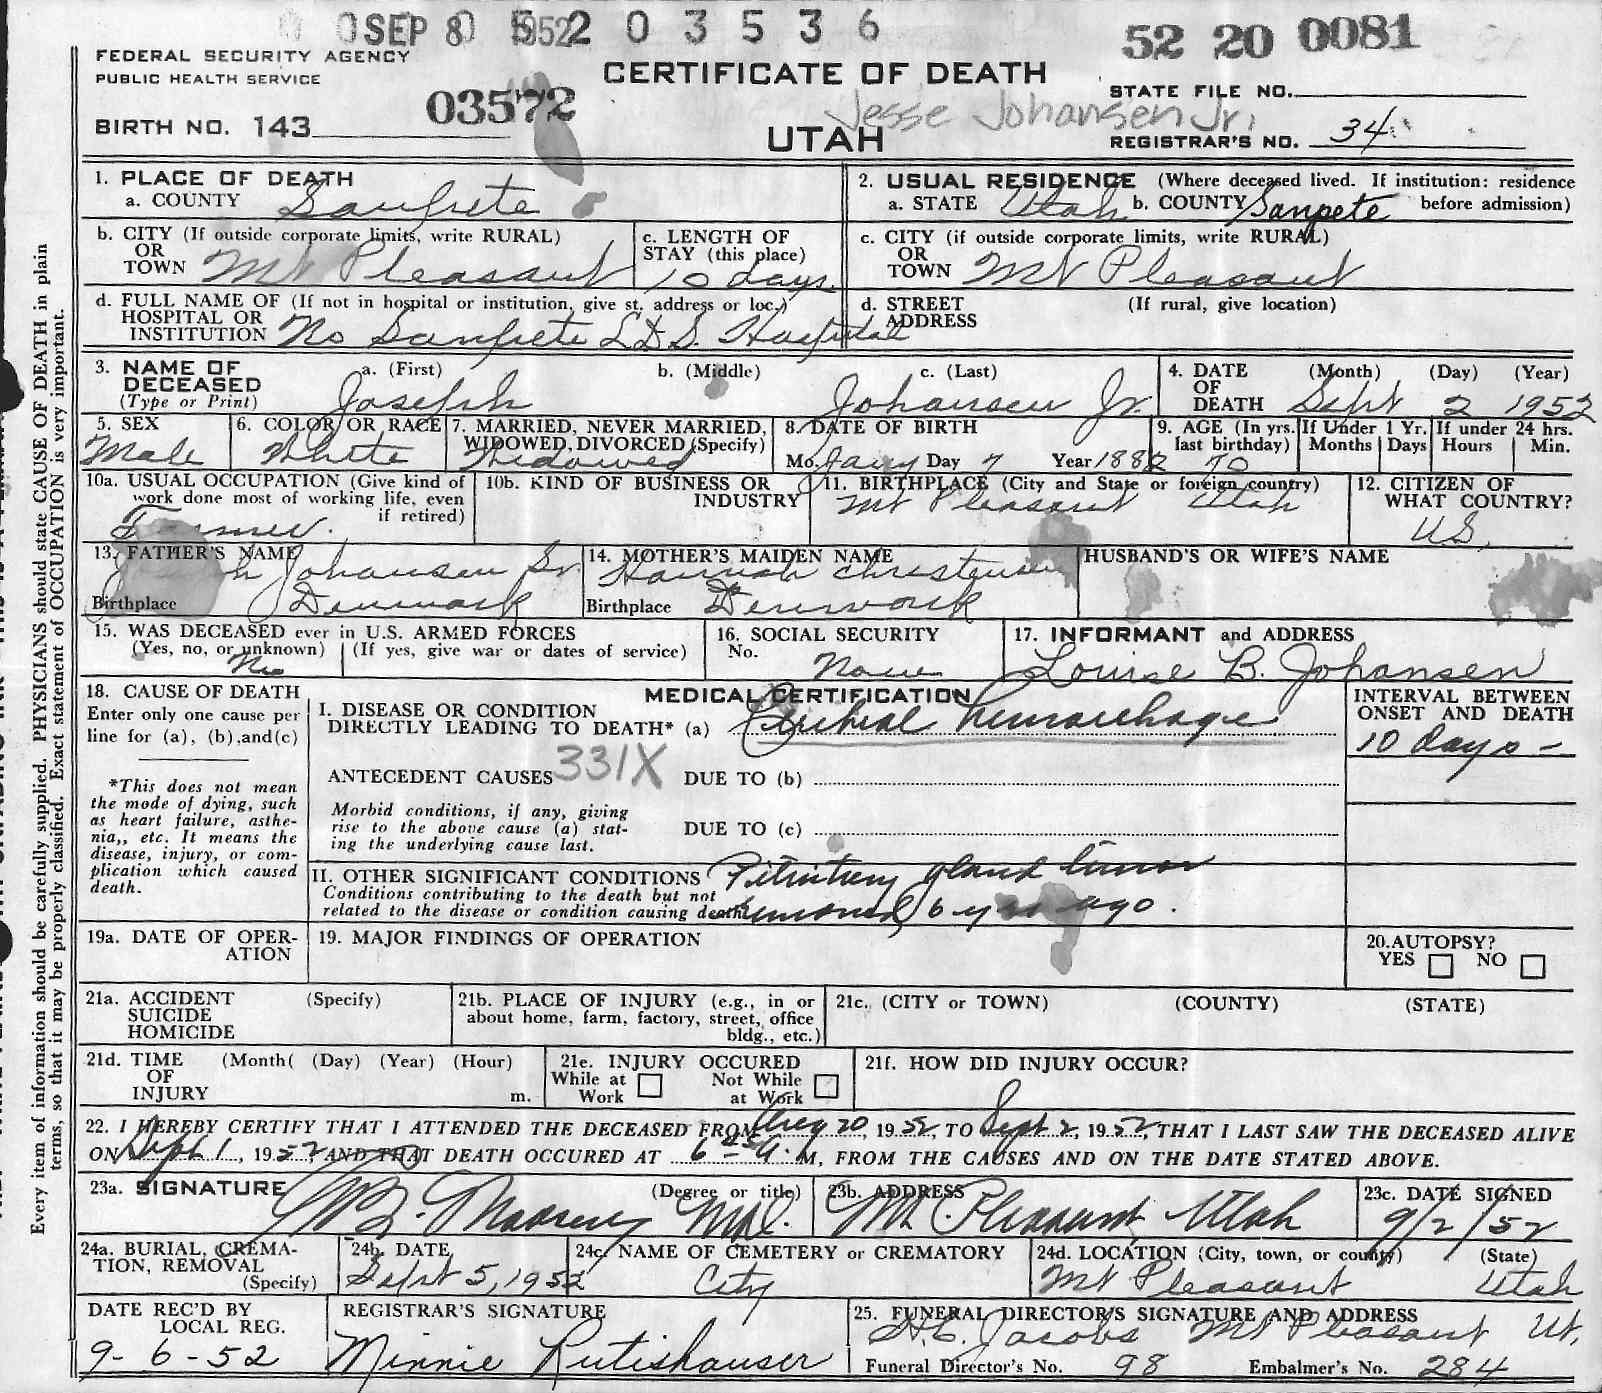 SEP 8 1952
0 5 2 0 3 5 3 6
52 20 0081
FEDERAL SECURITY AGENCY
PUBLIC HEALTH SERVICE
CERTIFICATE OF DEATH
STATE FILE NO.
03572
Jesse Johansen Jr.
BIRTH NO. 143
UTAH
REGISTRAR'S NO. 34
1. PLACE OF DEATH
a. COUNTY Sanpete
2. USUAL RESIDENCE (Where deceased lived. If institution: residence
a. STATE Utah b. COUNTY Sanpete before admission)
b. CITY (If outside corporate limits, write RURAL)
OR
TOWN Mt Pleasant
c. LENGTH OF
STAY (this place)
10 days
c. CITY (if outside corporate limits, write RURAL)
OR
TOWN Mt Pleasant
d. FULL NAME OF (If not in hospital or institution, give st. address or loc.)
HOSPITAL OR
INSTITUTION No Sanpete L.D.S. Hospital
d. STREET (If rural, give location)
ADDRESS
3. NAME OF
DECEASED
(Type or Print)
a. (First) b. (Middle) c. (Last)
Joseph Johansen Jr.
4. DATE (Month) (Day) (Year)
OF
DEATH Sept 2 1952
5. SEX
Male
6. COLOR OR RACE
White
7. MARRIED, NEVER MARRIED,
WIDOWED, DIVORCED (Specify)
Widowed
8. DATE OF BIRTH
Mo. Jany Day 7 Year 1882
9. AGE (In yrs.
last birthday)
70
If Under 1 Yr.
Months Days
If under 24 hrs.
Hours Min.
10a. USUAL OCCUPATION (Give kind of
work done most of working life, even
if retired)
Farmer.
10b. KIND OF BUSINESS OR
INDUSTRY
11. BIRTHPLACE (City and State or foreign country)
Mt Pleasant Utah
12. CITIZEN OF
WHAT COUNTRY?
US.
13. FATHER'S NAME
Johansen Sr.
Birthplace Denmark
14. MOTHER'S MAIDEN NAME
Hannah Christensen
Birthplace Denmark
HUSBAND'S OR WIFE'S NAME
15. WAS DECEASED ever in U.S. ARMED FORCES
(Yes, no, or unknown) (If yes, give war or dates of service)
No
16. SOCIAL SECURITY
No.
None
17. INFORMANT and ADDRESS
Louise B. Johansen
18. CAUSE OF DEATH
Enter only one cause per
line for (a), (b),and(c)
*This does not mean
the mode of dying, such
as heart failure, asthe-
nia,, etc. It means the
disease, injury, or com-
plication which caused
death.
MEDICAL CERTIFICATION
I. DISEASE OR CONDITION
DIRECTLY LEADING TO DEATH* (a) Cerebral hemorrhage
INTERVAL BETWEEN
ONSET AND DEATH
10 days –
ANTECEDENT CAUSES 331X DUE TO (b)
Morbid conditions, if any, giving
rise to the above cause (a) stat-
ing the underlying cause last.
DUE TO (c)
II. OTHER SIGNIFICANT CONDITIONS
Conditions contributing to the death but not
related to the disease or condition causing death
Pituitary gland tumor
removed 6 yrs ago.
19a. DATE OF OPER-
ATION
19. MAJOR FINDINGS OF OPERATION
20.AUTOPSY?
YES NO
21a. ACCIDENT (Specify)
SUICIDE
HOMICIDE
21b. PLACE OF INJURY (e.g., in or
about home, farm, factory, street, office
bldg., etc.)
21c. (CITY or TOWN) (COUNTY) (STATE)
21d. TIME (Month( (Day) (Year) (Hour)
OF
INJURY m.
21e. INJURY OCCURED
While at Work
Not While at Work
21f. HOW DID INJURY OCCUR?
22. I HEREBY CERTIFY THAT I ATTENDED THE DECEASED FROM Aug 20, 1952, TO Sept 2, 1952, THAT I LAST SAW THE DECEASED ALIVE
ON Sept 1, 1952, AND THAT DEATH OCCURED AT 6 A. M, FROM THE CAUSES AND ON THE DATE STATED ABOVE.
23a. SIGNATURE (Degree or title)
M.D.
23b. ADDRESS
Mt Pleasant, Utah
23c. DATE SIGNED
9/2/52
24a. BURIAL, CREMA-
TION, REMOVAL
(Specify)
24b. DATE
Sept 5, 1952
24c. NAME OF CEMETERY or CREMATORY
City
24d. LOCATION (City, town, or county) (State)
Mt Pleasant Utah
DATE REC'D BY
LOCAL REG.
9-6-52
REGISTRAR'S SIGNATURE
Minnie Rutishauser
25. FUNERAL DIRECTOR'S SIGNATURE AND ADDRESS
Jacobs Mt Pleasant Ut.
Funeral Director's No. 98 Embalmer's No. 284
Every item of information should be carefully supplied. PHYSICIANS should state CAUSE OF DEATH in plain
terms, so that it may be properly classified. Exact statement of OCCUPATION is very important.